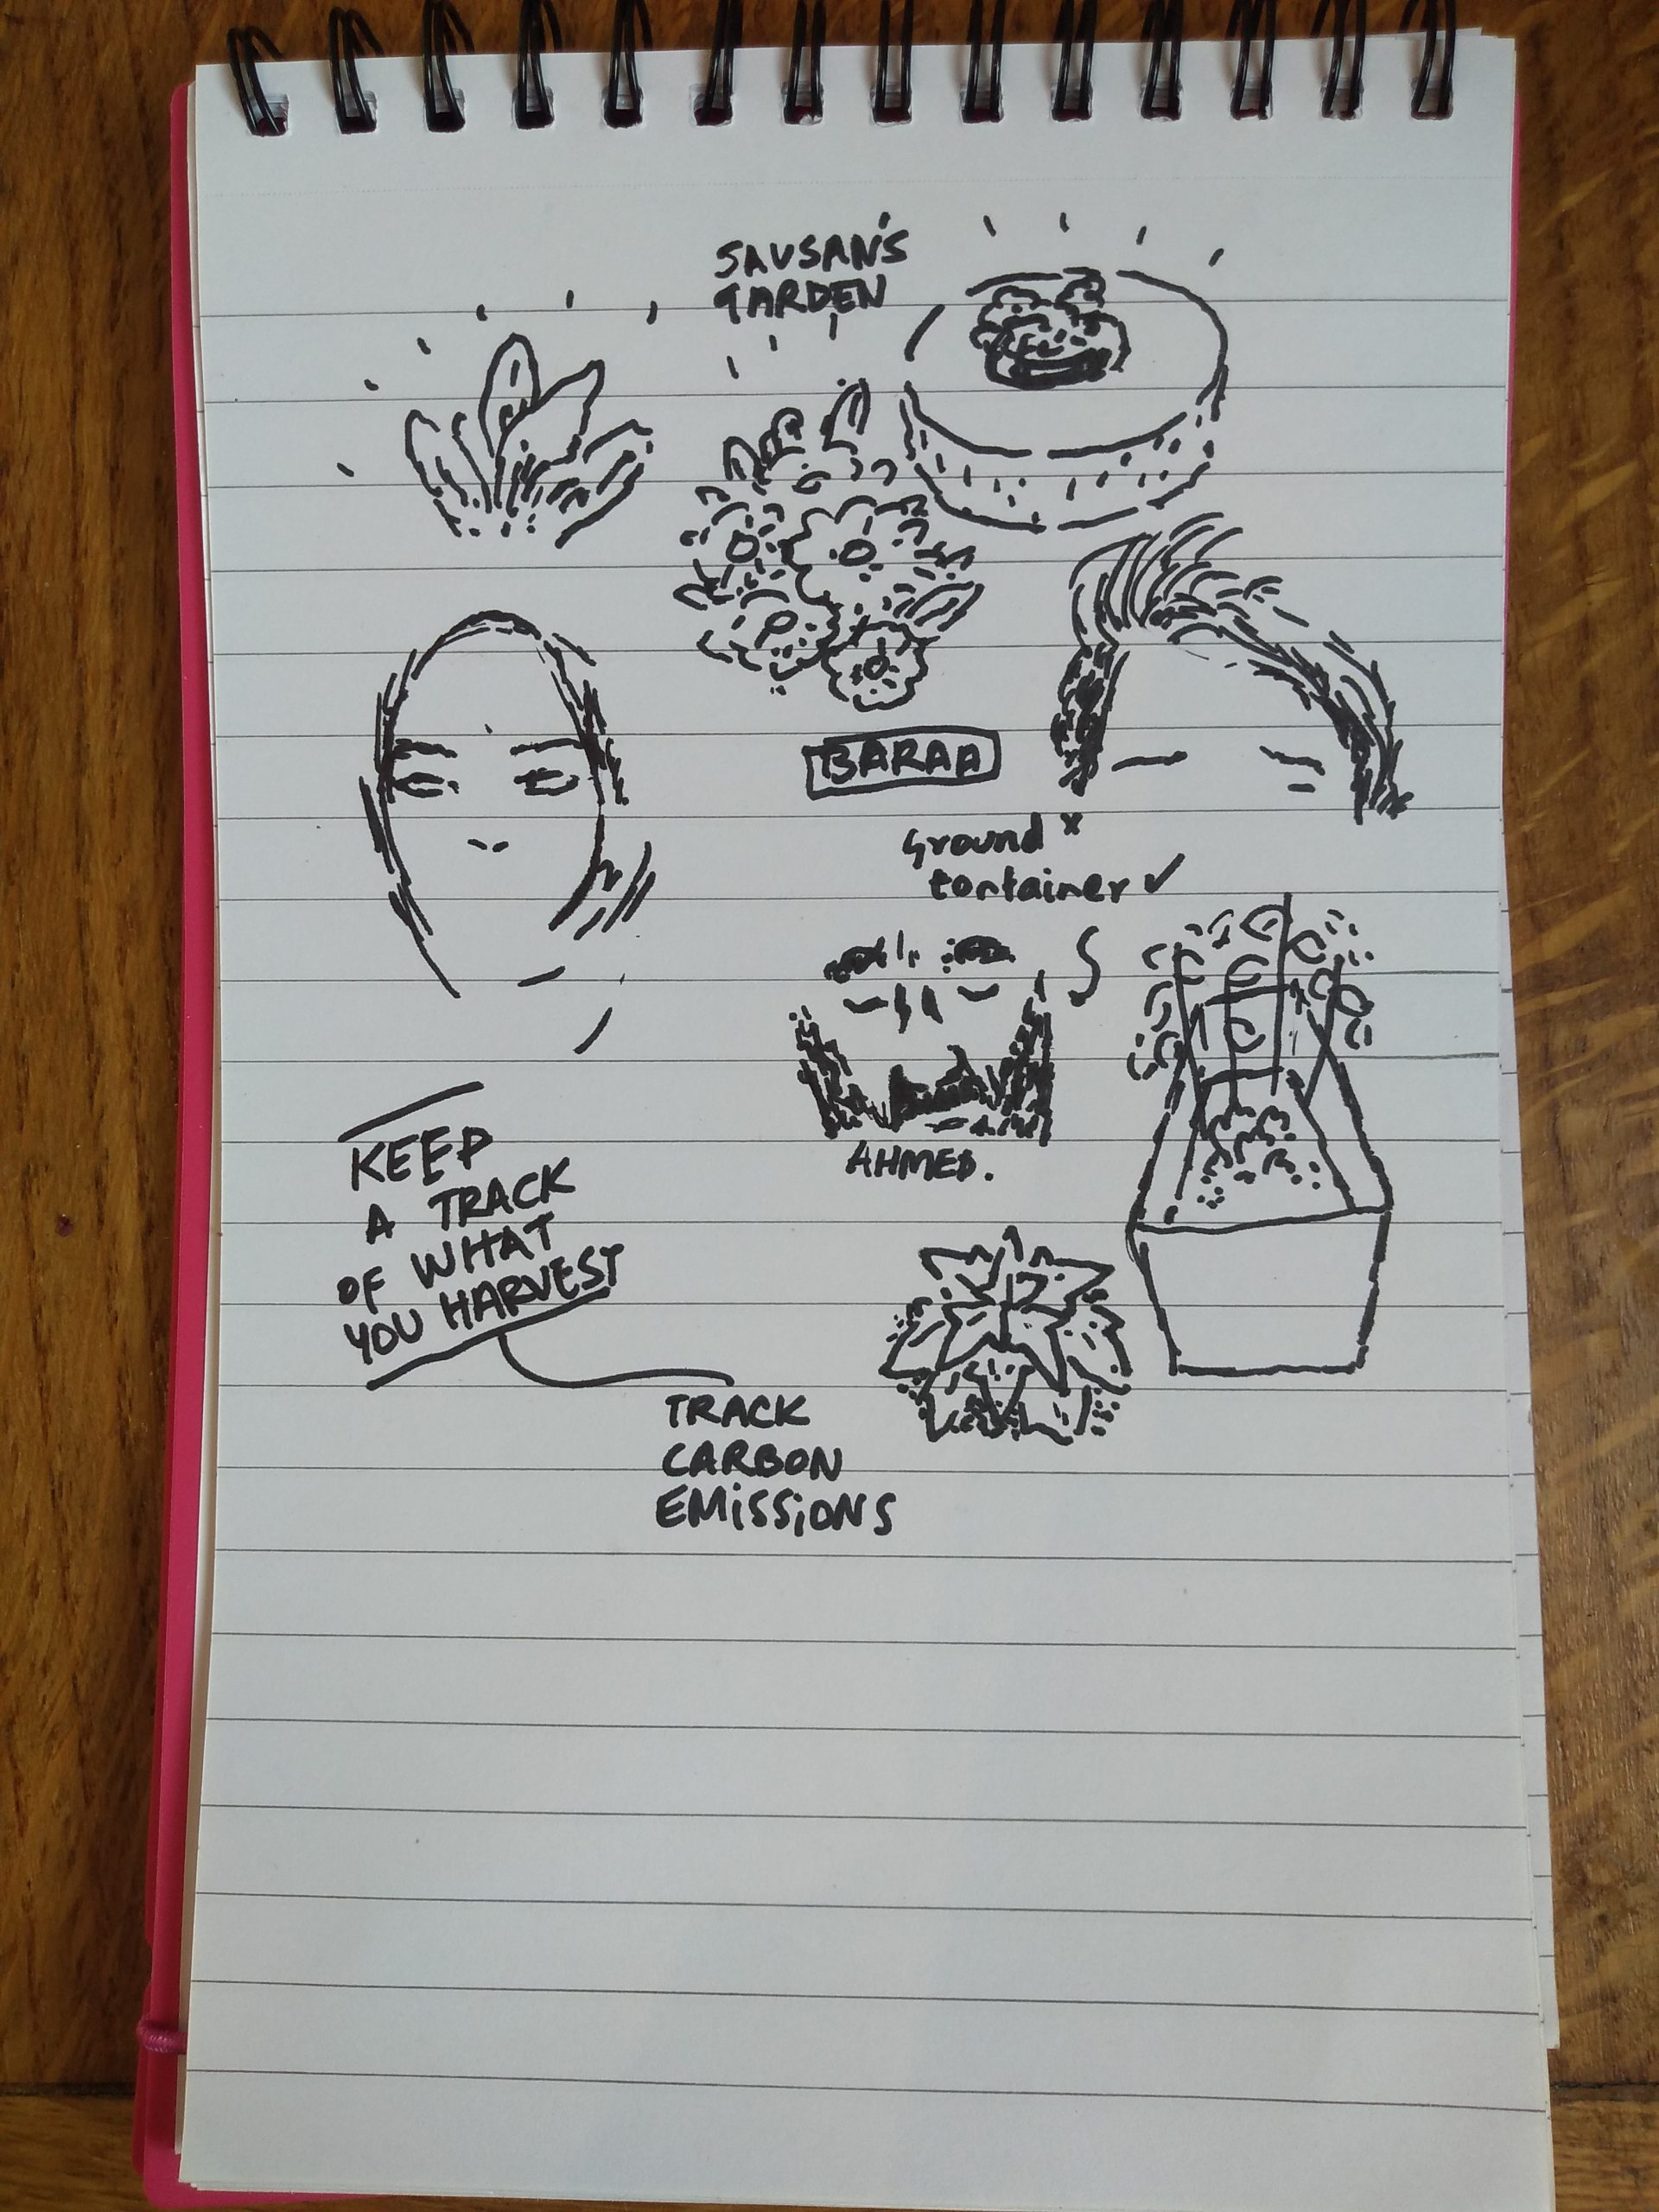 SAUSAN'S
GARDEN
BARAA
Ground x
container ✓
AHMED.
KEEP
A TRACK
OF WHAT
YOU HARVEST
TRACK
CARBON
EMISSIONS